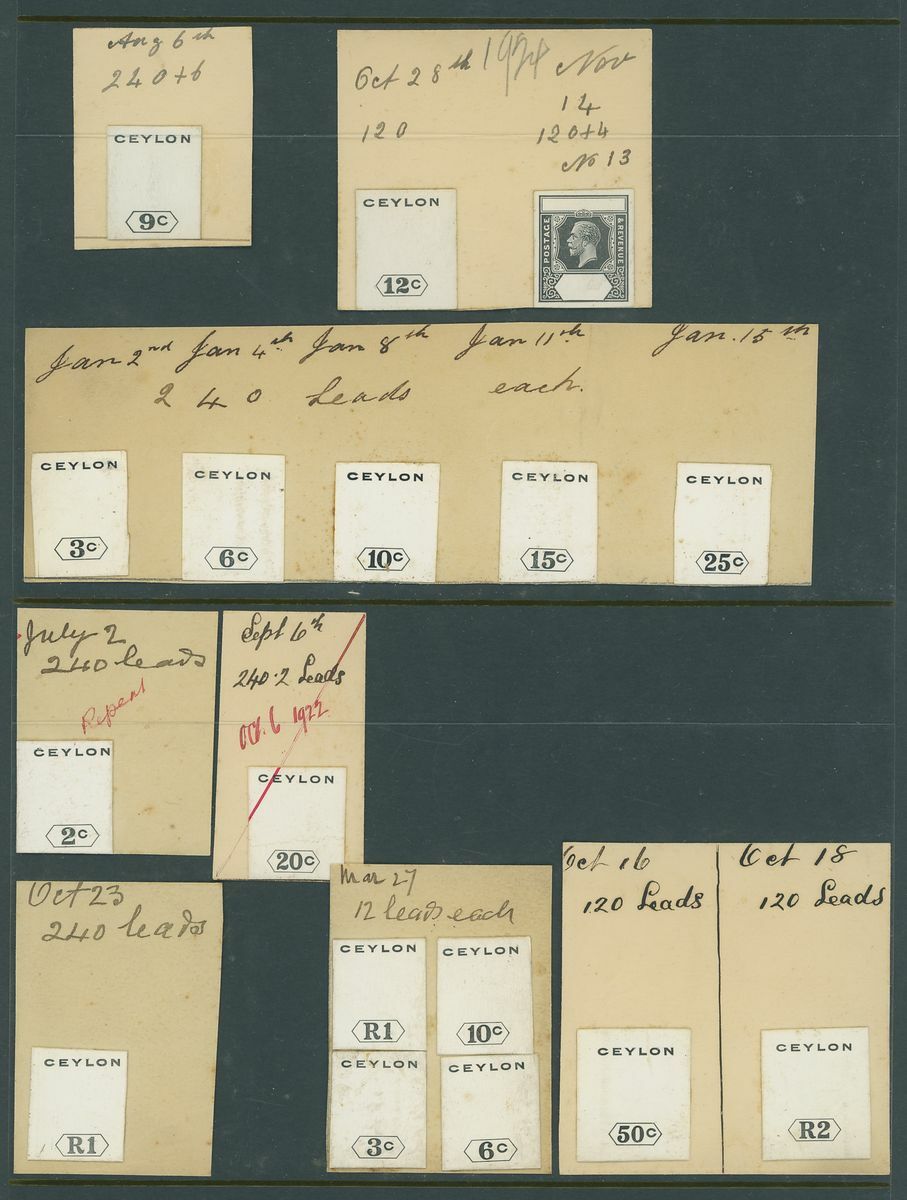 Aug 6th
240+6
CEYLON
9c
Oct 28th 1924 Nov
14
120 120+4
No 13
CEYLON
12c
POSTAGE & REVENUE
Jan 2nd Jan 4th Jan 8th Jan 11th Jan. 15th
240 Leads each.
CEYLON CEYLON CEYLON CEYLON CEYLON
3c 6c 10c 15c 25c
July 2
240 leads
Repeat
CEYLON
2c
Sept 6th
240.2 Leads
Oct. 6 1922
CEYLON
20c
Oct 23
240 leads
CEYLON
R1
Mar 27
12 leads each
CEYLON CEYLON
R1 10c
CEYLON CEYLON
3c 6c
Oct 16
120 Leads
CEYLON
50c
Oct 18
120 Leads
CEYLON
R2